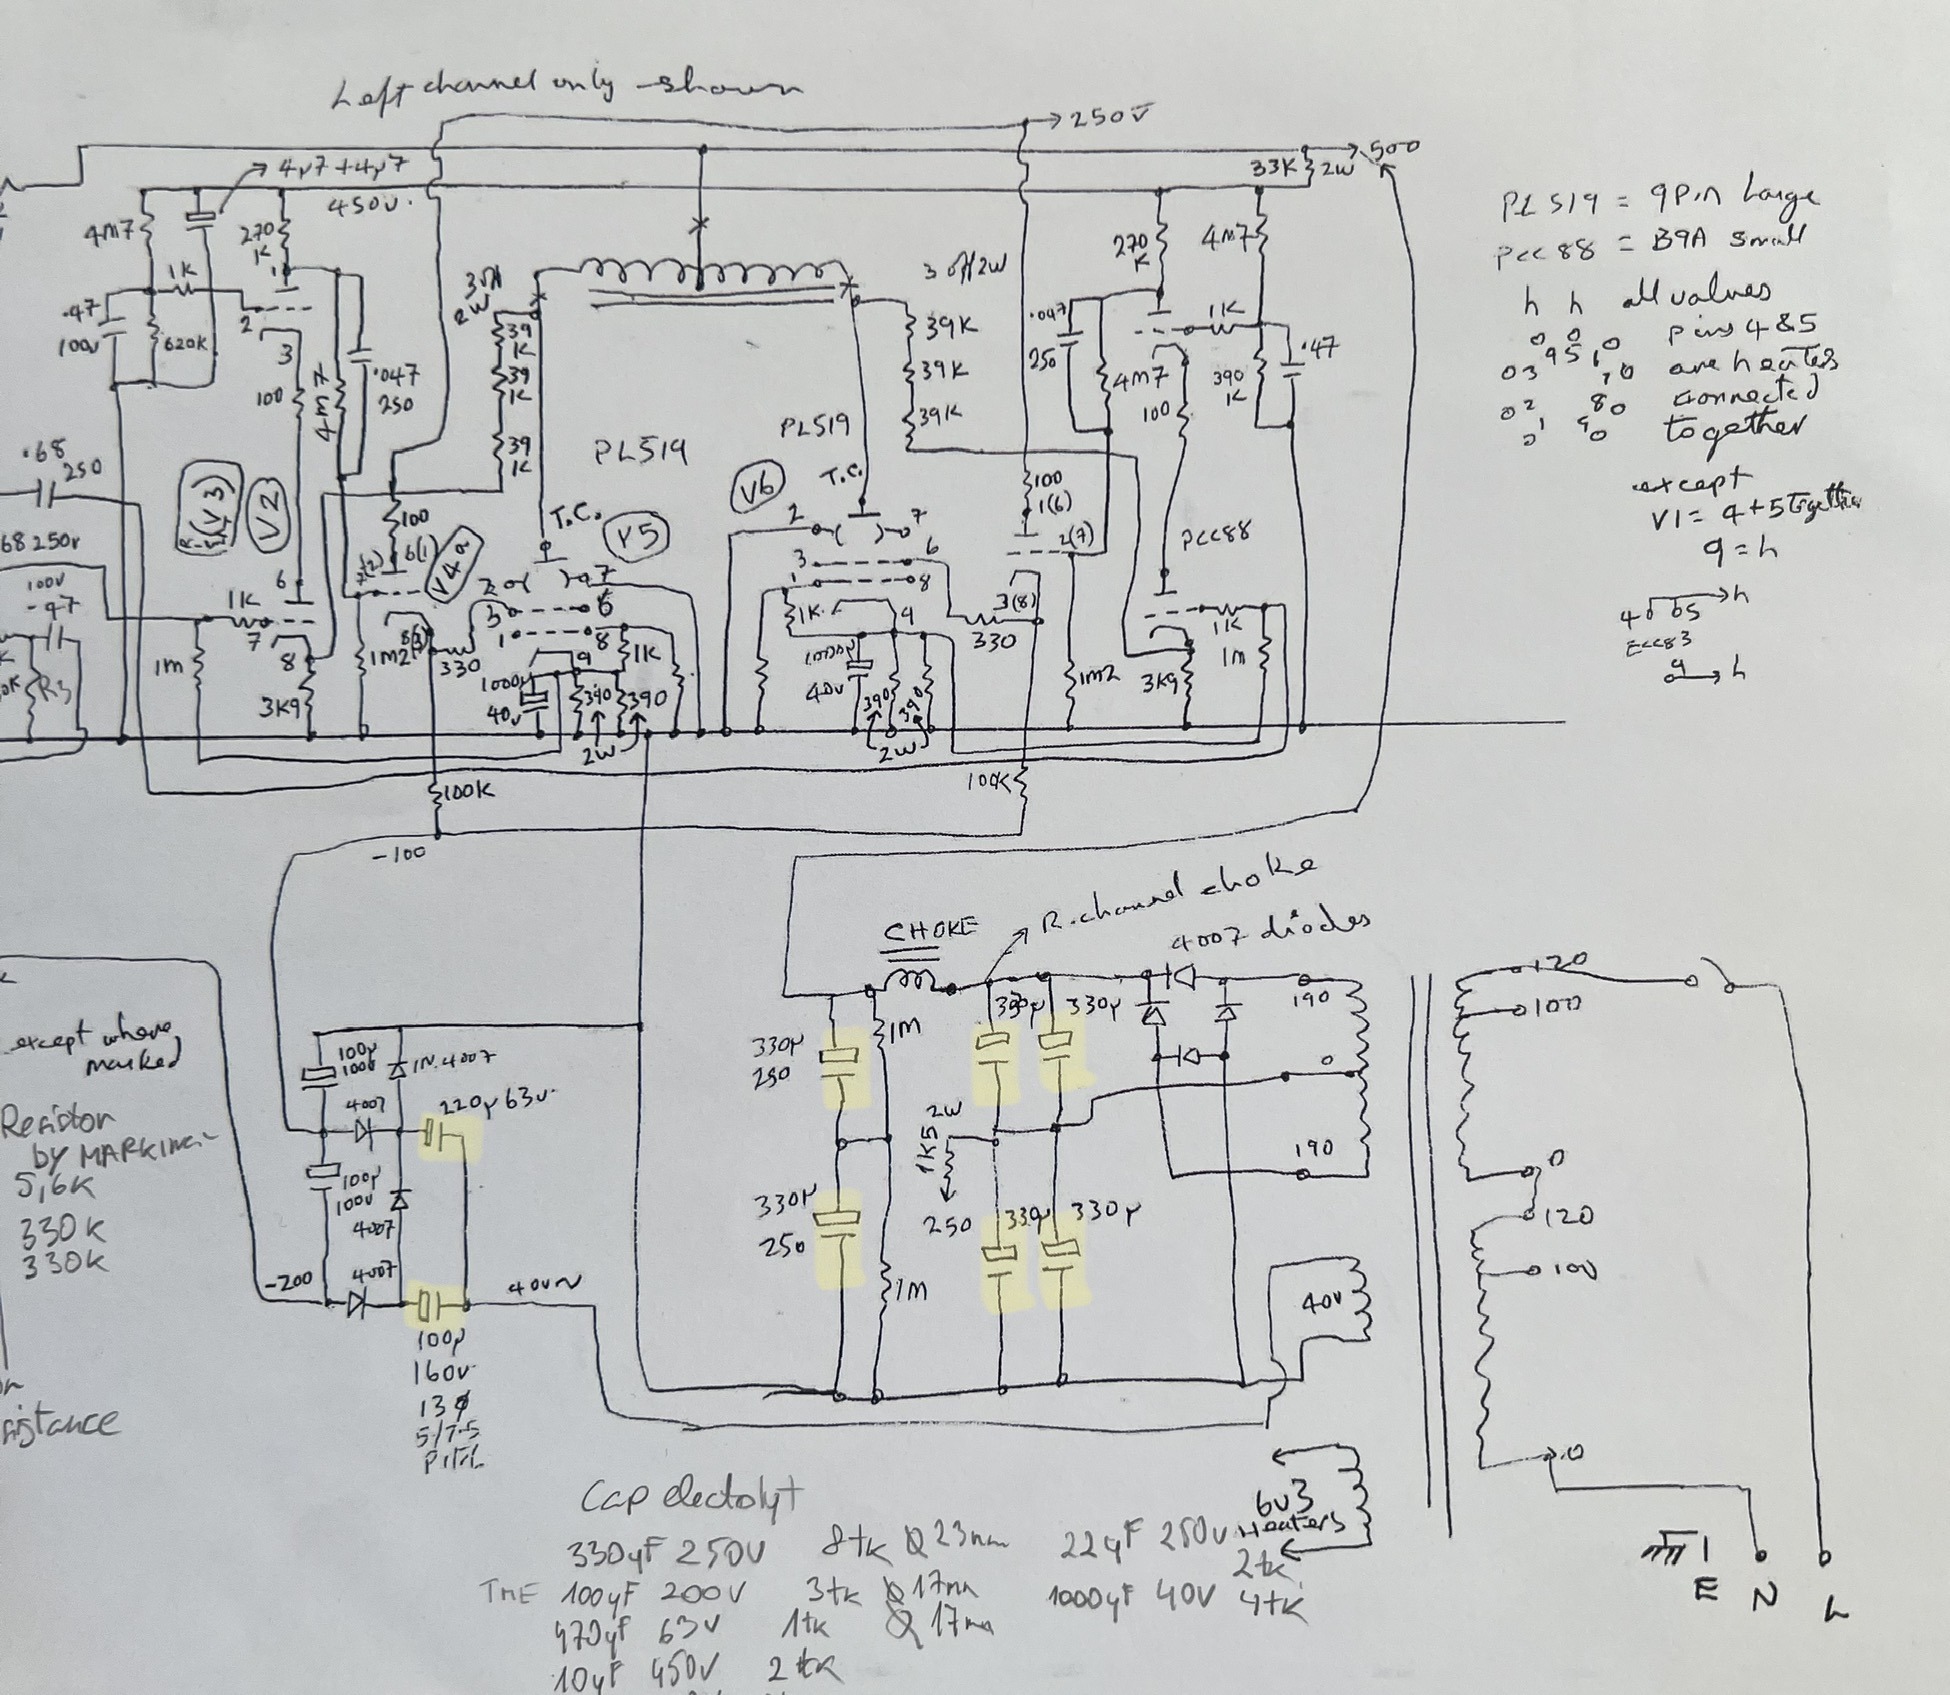 Left channel only shown
→ 250V
→ 500
33K 2W
4µ7 + 4µ7
450V.
4M7
270
K
1K
1
.47
100V
620K
2
3
100
4M7
.047
250
3 off
2W
39
1K
39
1K
39
1K
3 off 2W
39K
39K
39K
PL519
PL519
T.C.
T.C.
270
K
4M7
.047
250
1K
4M7
100
390
K
.47
PL519 = 9 Pin Large
PCC88 = B9A small
h h all valves
pins 4 & 5
are heaters
connected
together
except
V1 = 4+5 Together
9 = h
4 5 → h
ECC83
9 → h
.68
250
68 250V
100V
.47
R3
V2
V4a
V5
V6
1K
6
7
8
1M
3K9
100
6(1)
1M2
330
2
3
1
7
6
8
9
1K
1000µ
40V
390
390
2W
2
3
1
7
6
8
9
1K
1000µ
40V
390
390
2W
330
100
1(6)
2(7)
3(8)
1M2
PCC88
1K
1M
3K9
100K
100K
-100
CHOKE
R.channel choke
4007 diodes
except where
marked
Resistor
by MARKING
5,6K
330K
330K
100µ
100V
1N.4007
4007
220µ 63V.
100µ
100V
4007
-200
4007
40V~
100µ
160V
13ϕ
5/7.5
Pitch
330µ
250
1M
330µ
330µ
2W
1K5
250
330µ
250
330µ
330µ
1M
190
0
190
40V
120
100
0
120
100
0
6V3
Heaters
E N L
Cap electolyt
330µF 250V 8tk Ø23mm 22µF 250V 2tk
TME 100µF 200V 3tk Ø17mm 1000µF 40V 4tk
470µF 63V 1tk Ø17mm
10µF 450V 2tk